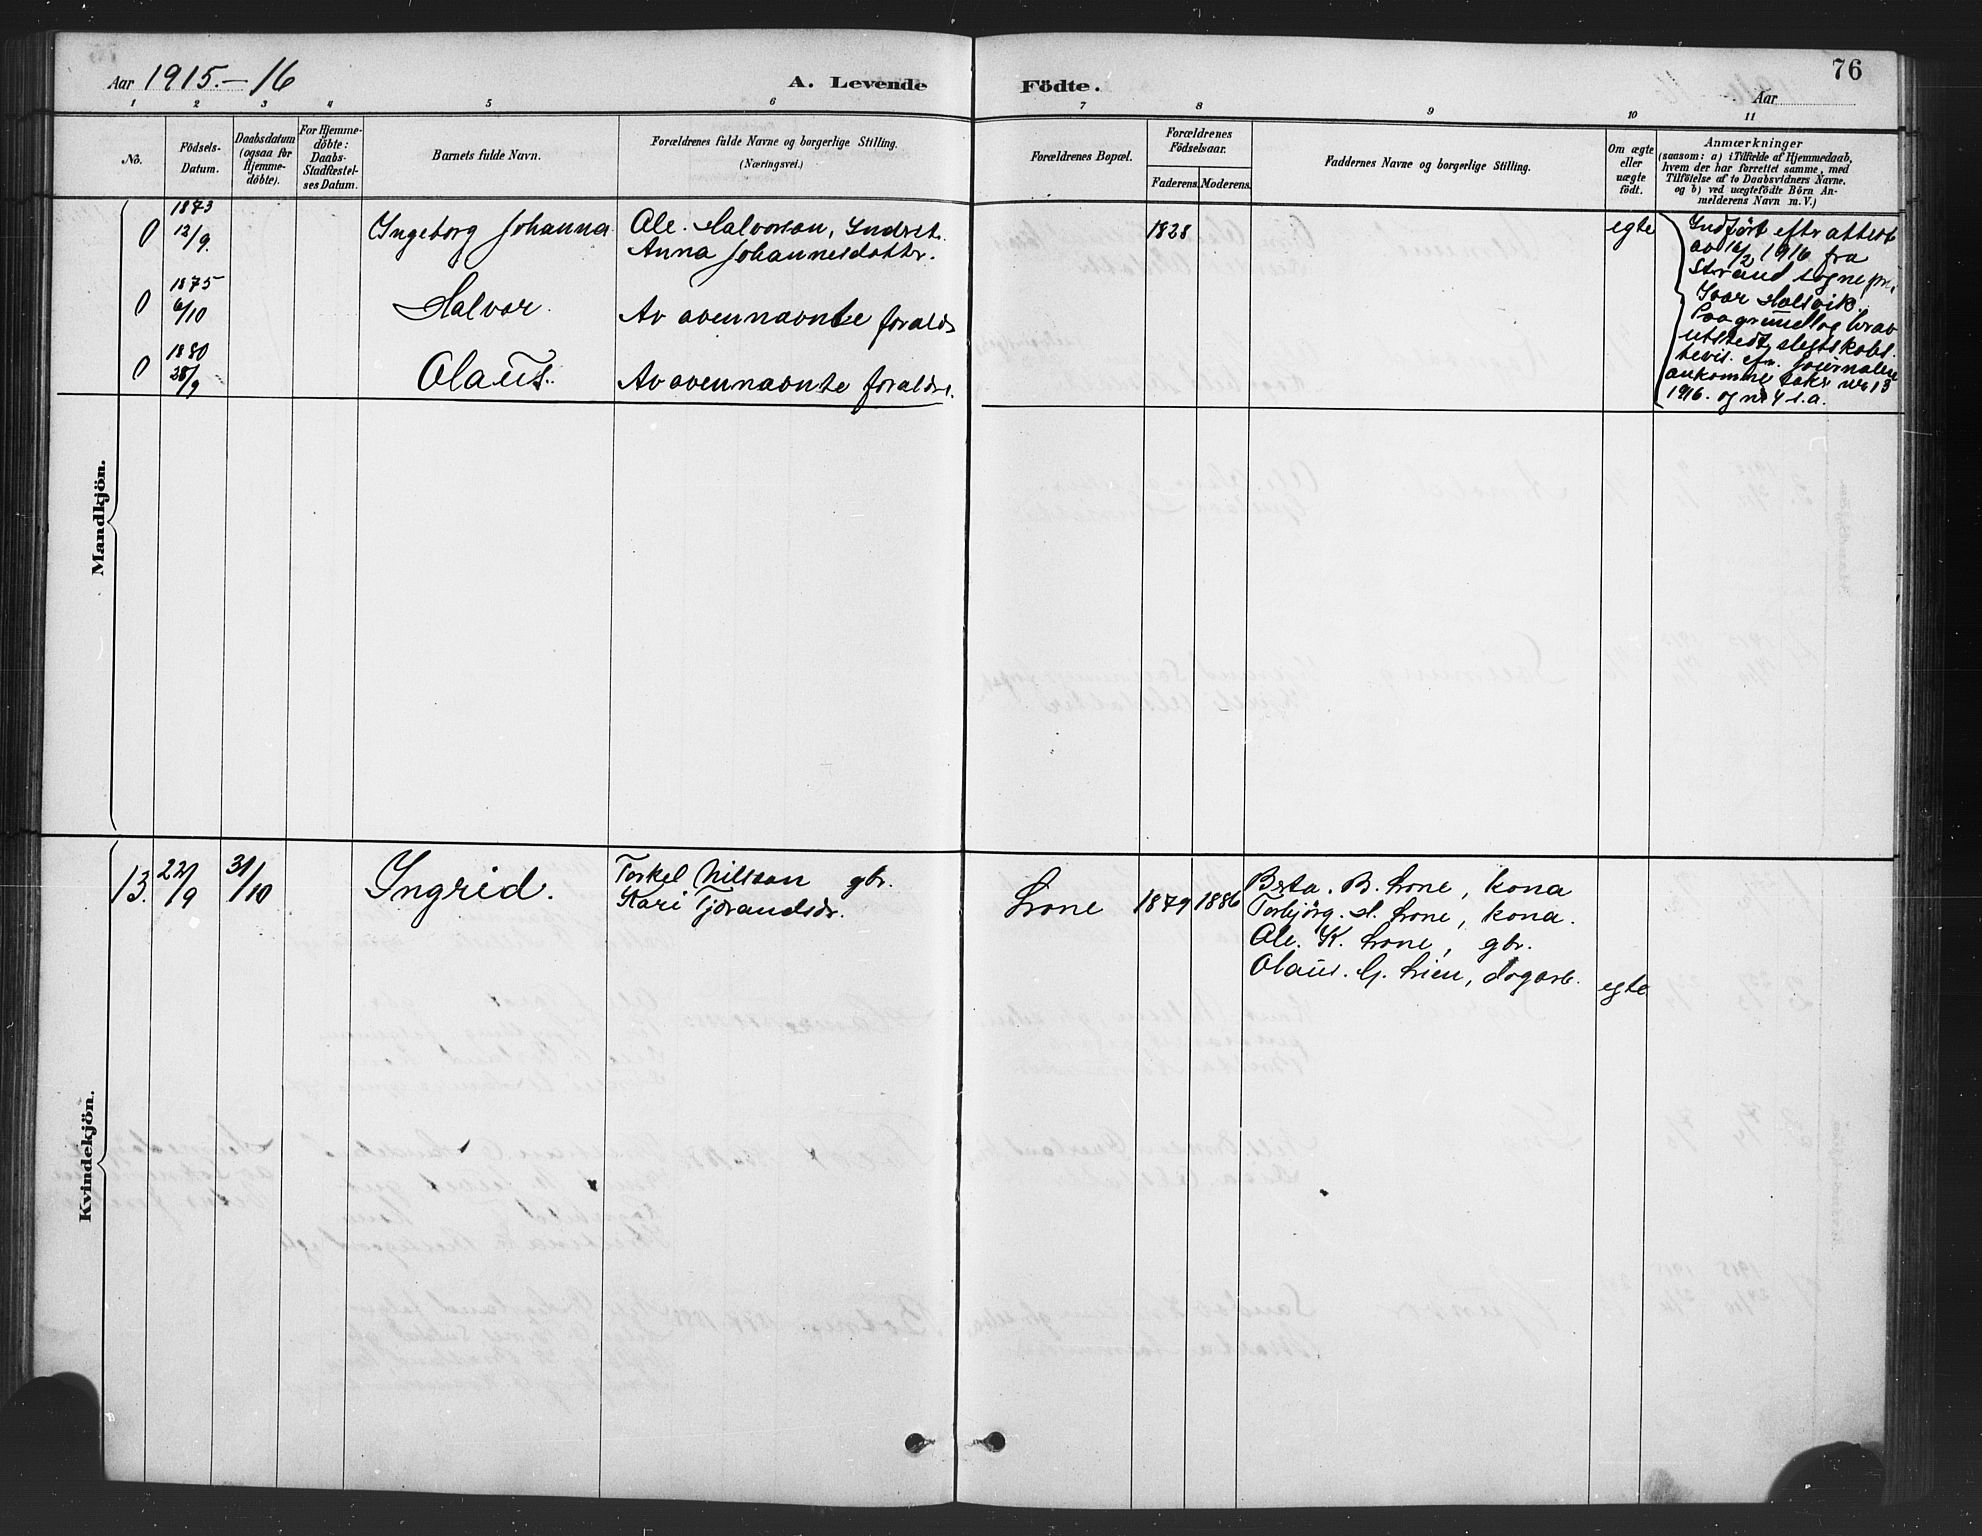 76
Aar 1915.-16
A. Levende Födte.
Aar
1 2 3 4 5 6 7 8 9 10 11
No.
Födsels-Datum.
Daabsdatum (ogsaa for Hjemme-döbte).
For Hjemme-döbte: Daabs-Stadfæstel-ses Datum.
Barnets fulde Navn.
Forældrenes fulde Navne og borgerlige Stilling.
(Næringsvei.)
Forældrenes Bopæl.
Forældrenes Födselsaar.
Faderens. Moderens.
Faddernes Navne og borgerlige Stilling.
Om ægte eller uægte födt.
Anmærkninger
(saasom: a) i Tilfælde af Hjemmedaab,
hvem der har forrettet samme, med
Tilföielse af to Daabsvidners Navne,
og b) ved uægtefödte Börn An-
melderens Navn m. V.)
Mandkjön.
0 1873 12/9. Ingeborg Johanna Ole Halvorson, 1828 egte
Anna Johannesdotter.
0 1875 6/10 Halvor. Av ovennavnte forældr
0 1880 28/9 Olaus. Av ovennavnte forældr.
Indført eftr attest
av 16/2 1916 fra
Strand sognepr.
Ivar
Paa grundlag
utstedt slegtskabs.
bevis. journalen
ankomne saker nr 13
1916. og nr 4 s.a.
Kvindekjön.
13. 22/9 31/10 Ingrid. Torkel Nilsson gbr. Lrone 1879 1886 Brta. B. Lrone, kona
Kari Tjørandsdr. Torbjörg. H. Lrone, kona.
Ole. K. Lrone, gbr.
Olaus. G. Lien, dagarb. egte